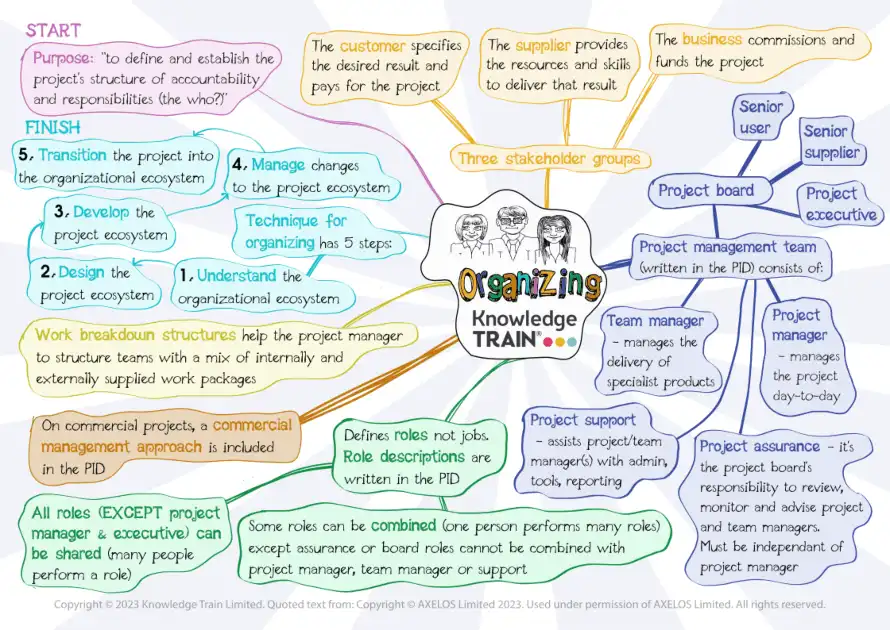 START
Purpose: "to define and establish the
project's structure of accountability
and responsibilities (the who?)"
The customer specifies
the desired result and
pays for the project
The supplier provides
the resources and skills
to deliver that result
The business commissions and
funds the project
Three stakeholder groups
FINISH
5. Transition the project into
the organizational ecosystem
4. Manage changes
to the project ecosystem
3. Develop the
project ecosystem
Technique for
organizing has 5 steps:
2. Design the
project ecosystem
1. Understand the
organizational ecosystem
Organizing
Knowledge
TRAIN®
Senior
user
Senior
supplier
Project board
Project
executive
Project management team
(written in the PID) consists of:
Team manager
- manages the
delivery of
specialist products
Project
manager
- manages
the project
day-to-day
Project support
- assists project/team
manager(s) with admin,
tools, reporting
Project assurance - it's
the project board's
responsibility to review,
monitor and advise project
and team managers.
Must be independant of
project manager
Work breakdown structures help the project manager
to structure teams with a mix of internally and
externally supplied work packages
On commercial projects, a commercial
management approach is included
in the PID
Defines roles not jobs.
Role descriptions are
written in the PID
All roles (EXCEPT project
manager & executive) can
be shared (many people
perform a role)
Some roles can be combined (one person performs many roles)
except assurance or board roles cannot be combined with
project manager, team manager or support
Copyright © 2023 Knowledge Train Limited. Quoted text from: Copyright © AXELOS Limited 2023. Used under permission of AXELOS Limited. All rights reserved.